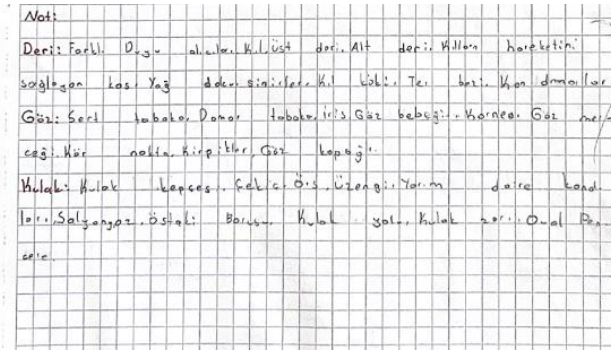 Not:
Deri: Farklı Duygu alıcıları, Kıl, üst deri, Alt deri, Kılların hareketini
sağlayan kas, Yağ doku, sinirler, Kıl kökü, Ter bezi, Kan damarları
Göz: Sert tabaka, Damar tabaka, iris, Göz bebeği, Kornea, Göz mer-
ceği, Kör nokta, Kirpikler, Göz kapağı.
Kulak: Kulak kepçesi, Çekiç, Örs, Üzengi, Yarım daire kanal
ları, Salyangoz, östaki Borusu, Kulak yolu, Kulak zarı, Oval Pen
cere.